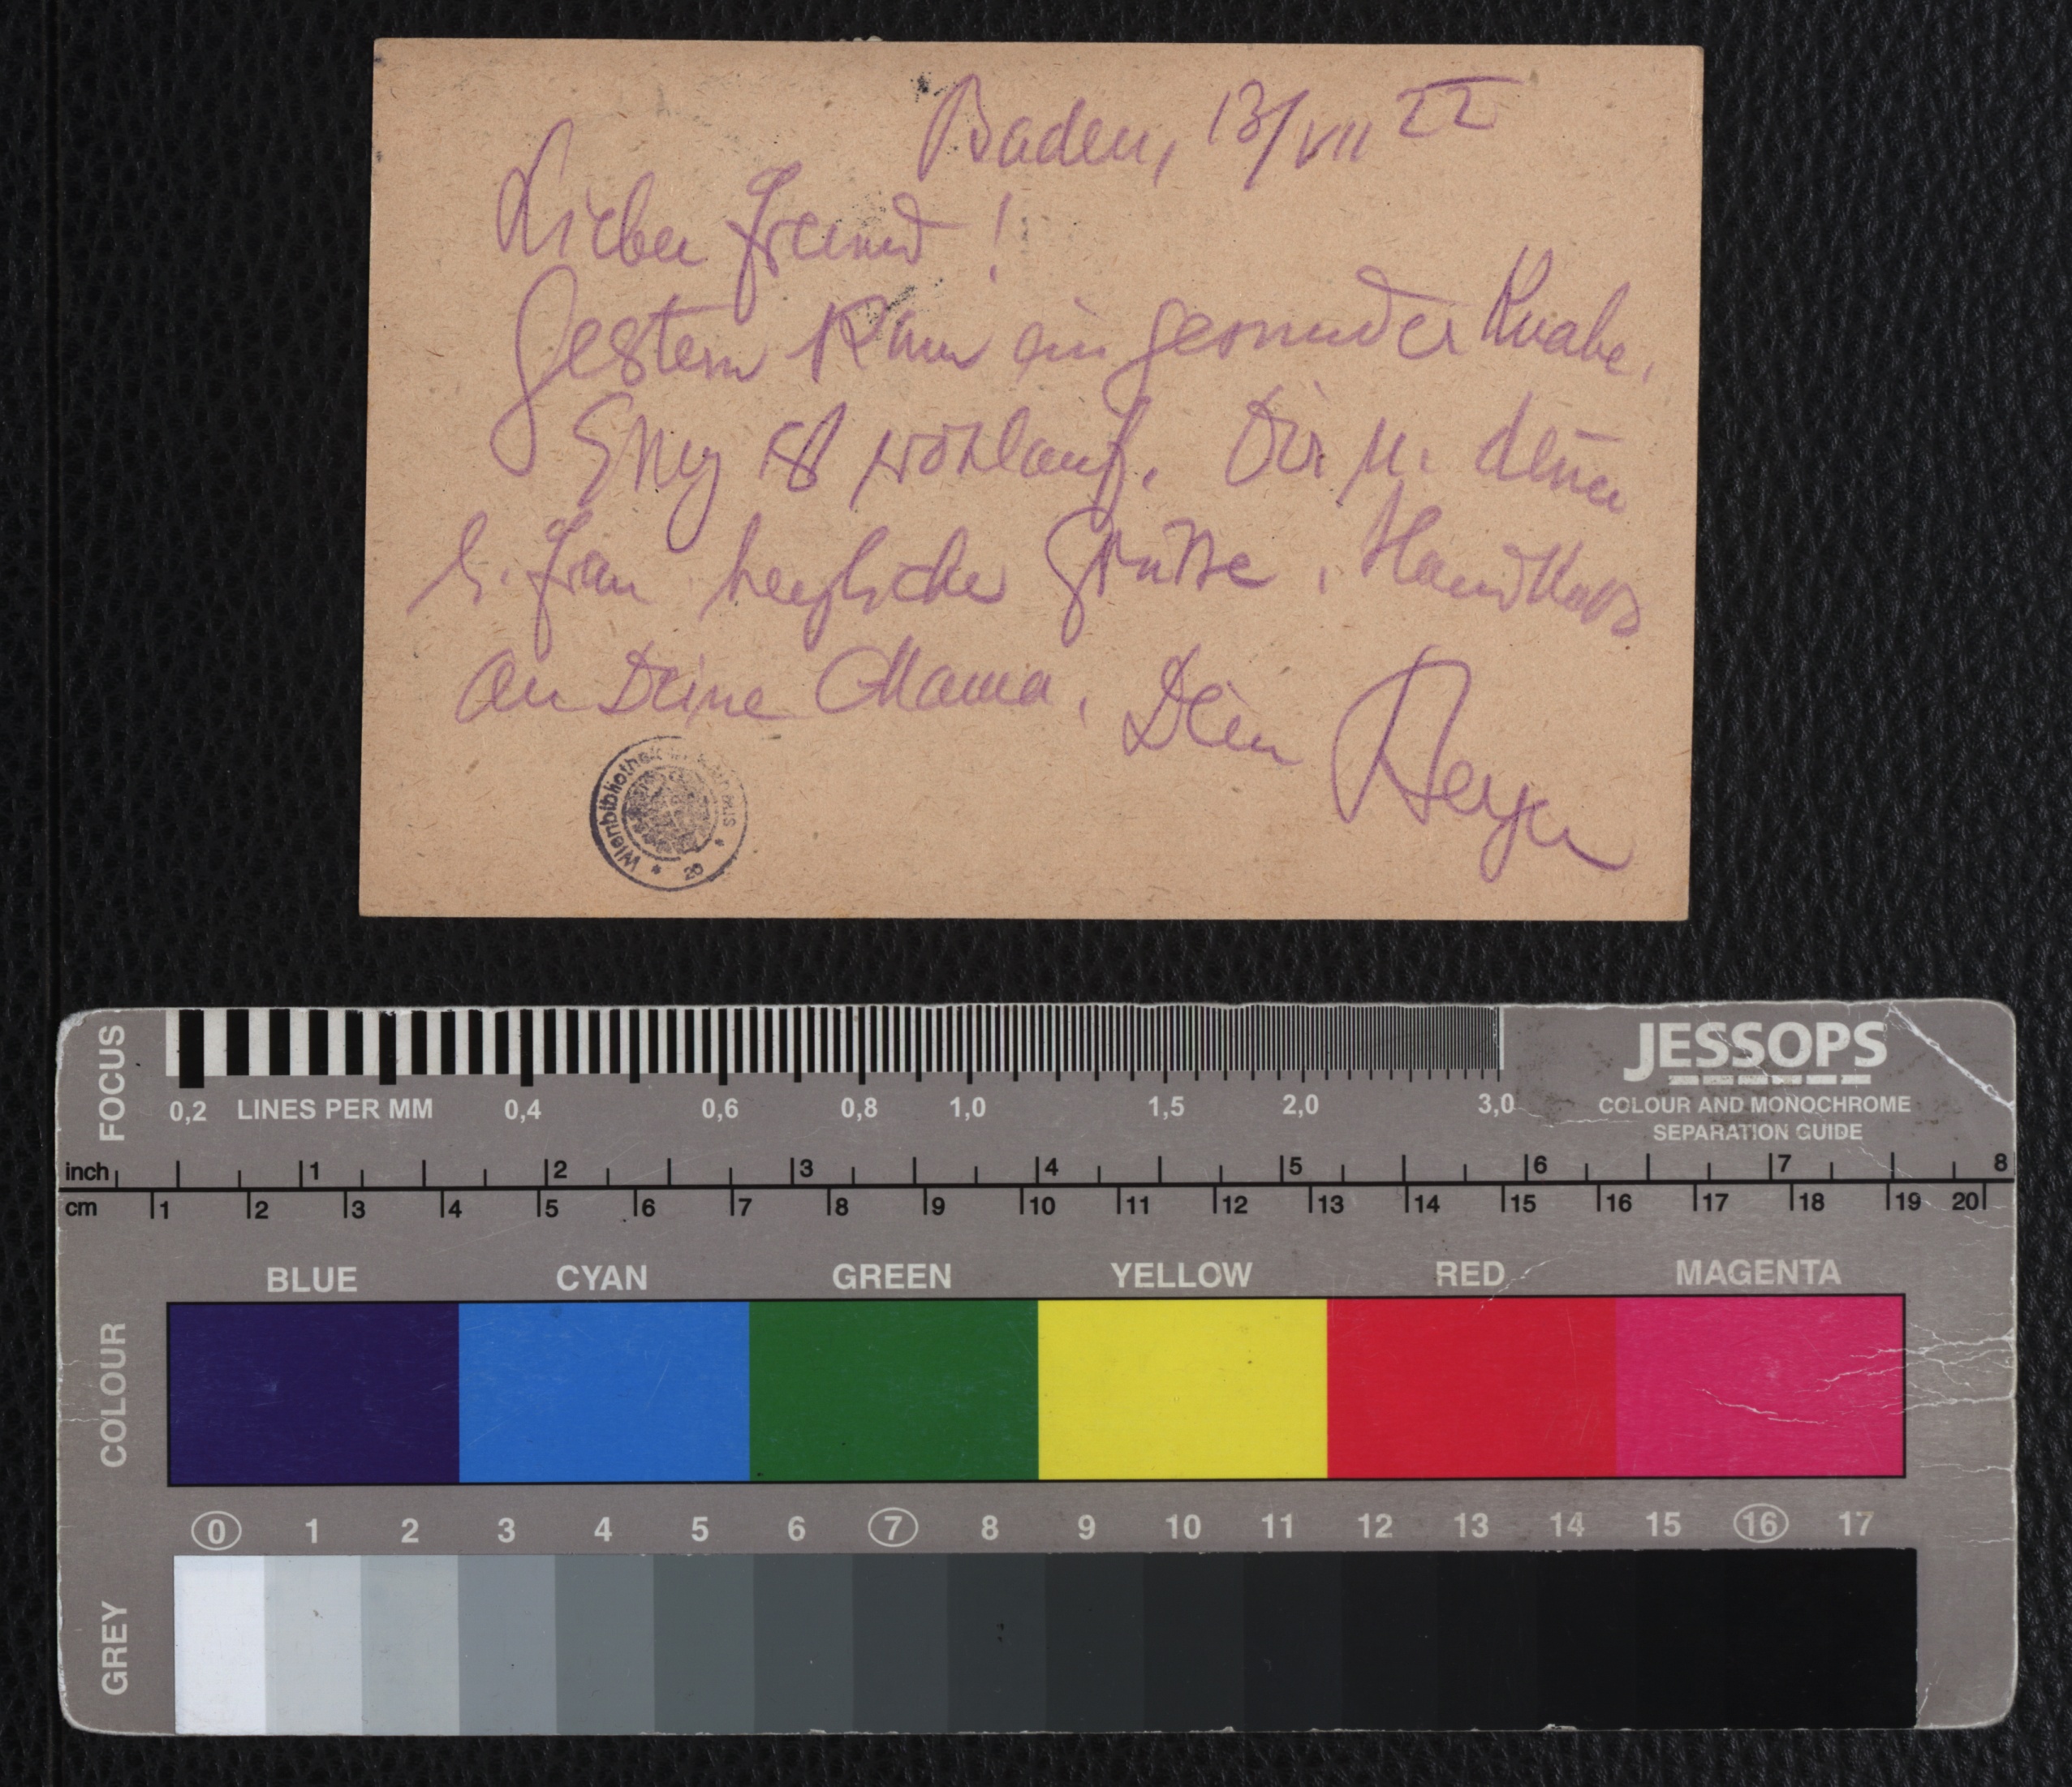 Baden, 13/VII 22
Lieber Freund!
Gestern kam ein gesunder Knabe.
Emy ist wohlauf. Dir u. deiner
l. Frau herzliche Grüsse, Handkuss
an Deine Mama. Dein
Wienbibliothek im Rathaus * 20 *
FOCUS
0,2 LINES PER MM 0,4 0,6 0,8 1,0 1,5 2,0 3,0
JESSOPS
COLOUR AND MONOCHROME
SEPARATION GUIDE
inch 1 2 3 4 5 6 7 8
cm 1 2 3 4 5 6 7 8 9 10 11 12 13 14 15 16 17 18 19 20
COLOUR
BLUE CYAN GREEN YELLOW RED MAGENTA
0 1 2 3 4 5 6 7 8 9 10 11 12 13 14 15 16 17
GREY